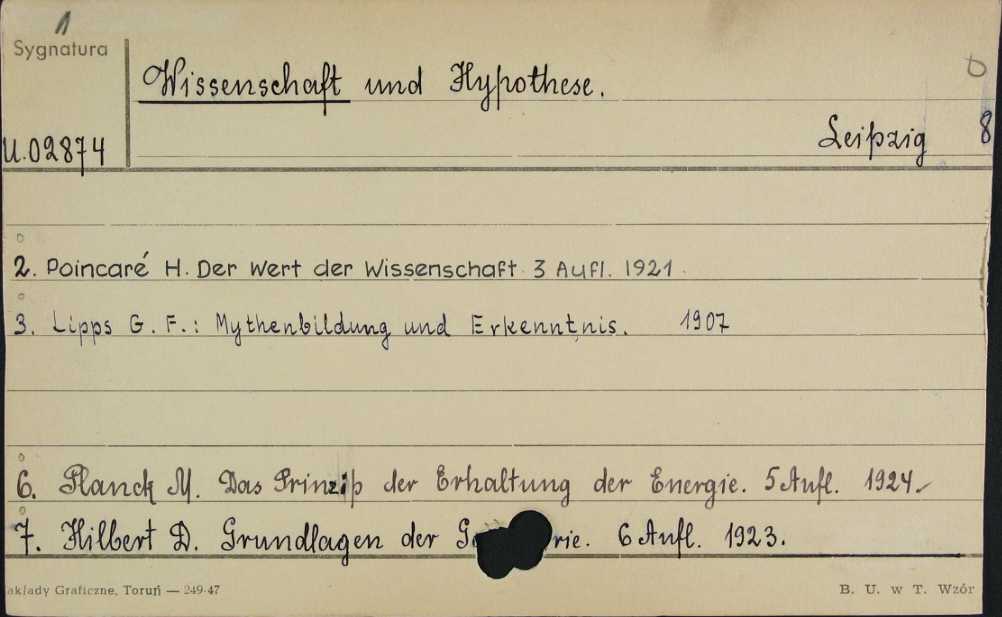 1
Sygnatura
Wissenschaft und Hypothese.
Leipzig 8
U.02874
2. Poincaré H. Der Wert der Wissenschaft 3 Aufl. 1921.
3. Lipps G. F.: Mythenbildung und Erkenntnis. 1907
6. Planck M. Das Prinzip der Erhaltung der Energie. 5 Aufl. 1924
7. Hilbert D. Grundlagen der 6 Aufl. 1923.
akłady Graficzne, Toruń — 249-47
B. U. w T. Wzór